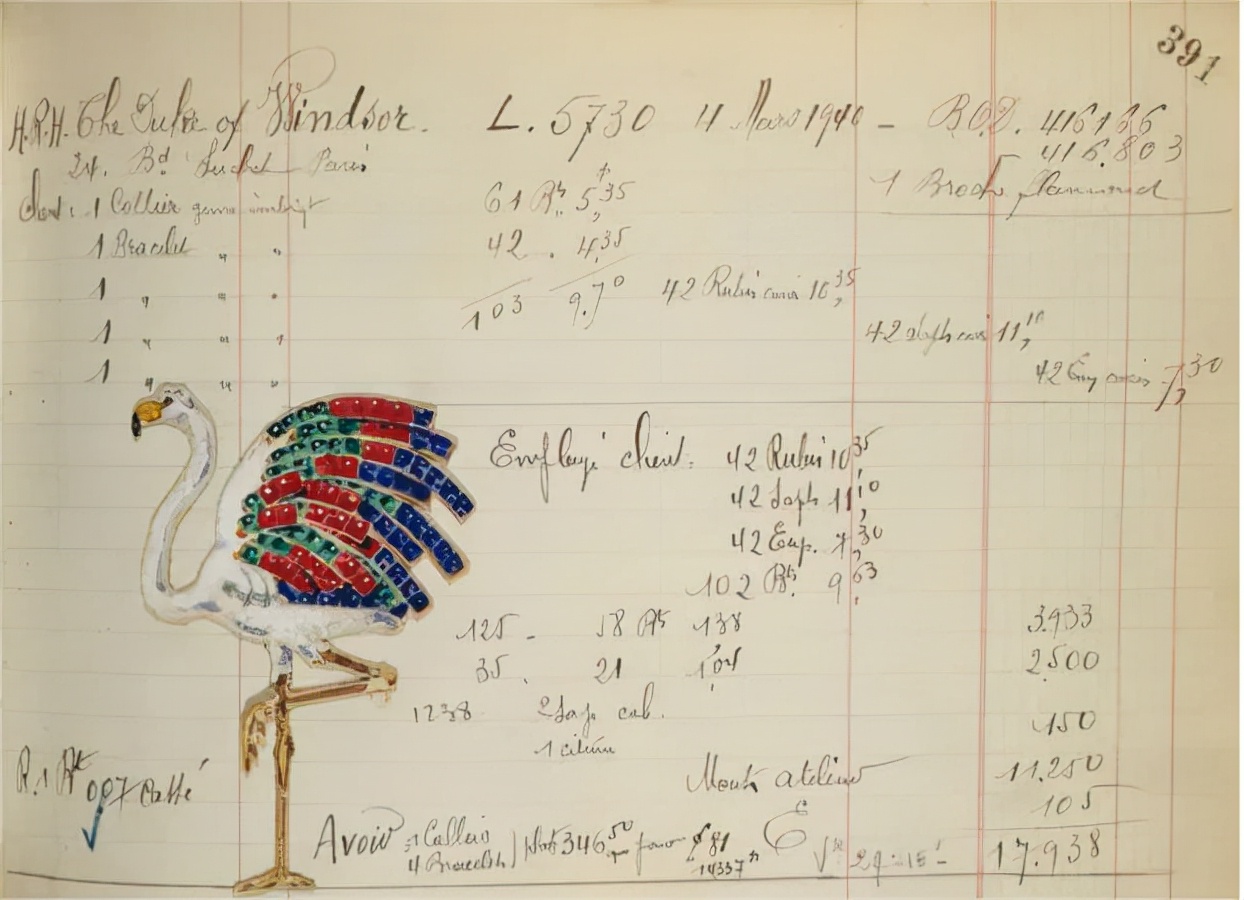 391
H.R.H. The Duke of Windsor. L. 5730 4 Mars 1940 - B.O.D. 416136
24. Bd Suchet Paris 416.803
1 Broch flammand
Client: 1 Collier gemme 61 Bts 5,35
1 Bracelet " " 42 . 4,35
1 " " " 103 9.70 42 Rubis 10,35
1 " " " 42 saph 11,10
1 " " " 42 Em 7,30
Employé client: 42 Rubis 10,35
42 Saph 11,10
42 Em. 7,30
102 Bts. 9,63
125 - 58 Bts 138 3.933
35. 21 1,04 2.500
1238 2 Sap. cab. 150
1 citrine
R. 1 Bt 007 cassé Mont atelier 11.250
105
Avoir : 1 Collier 4 Bracelets 346,50 pour 81 14337 17.938